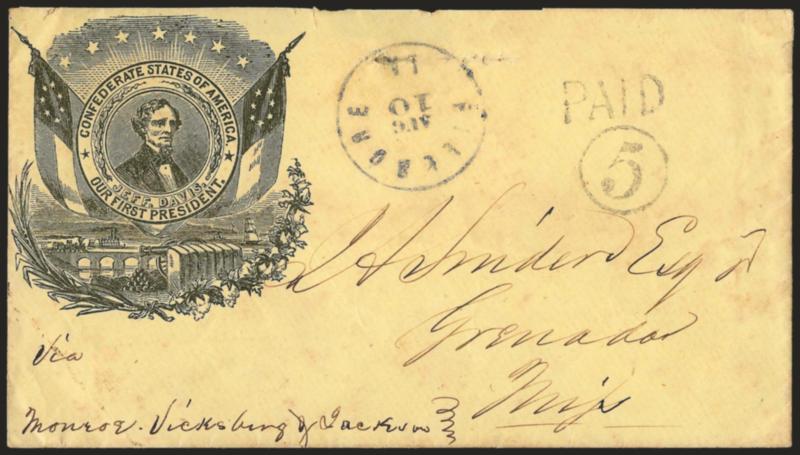 CONFEDERATE STATES OF AMERICA.
JEFF. DAVIS,
OUR FIRST PRESIDENT.
FILLMORE LA
AUG
10
PAID
5
Snider Esqr
Grenada
Miss
Via
Monroe. Vicksburg & Jackson